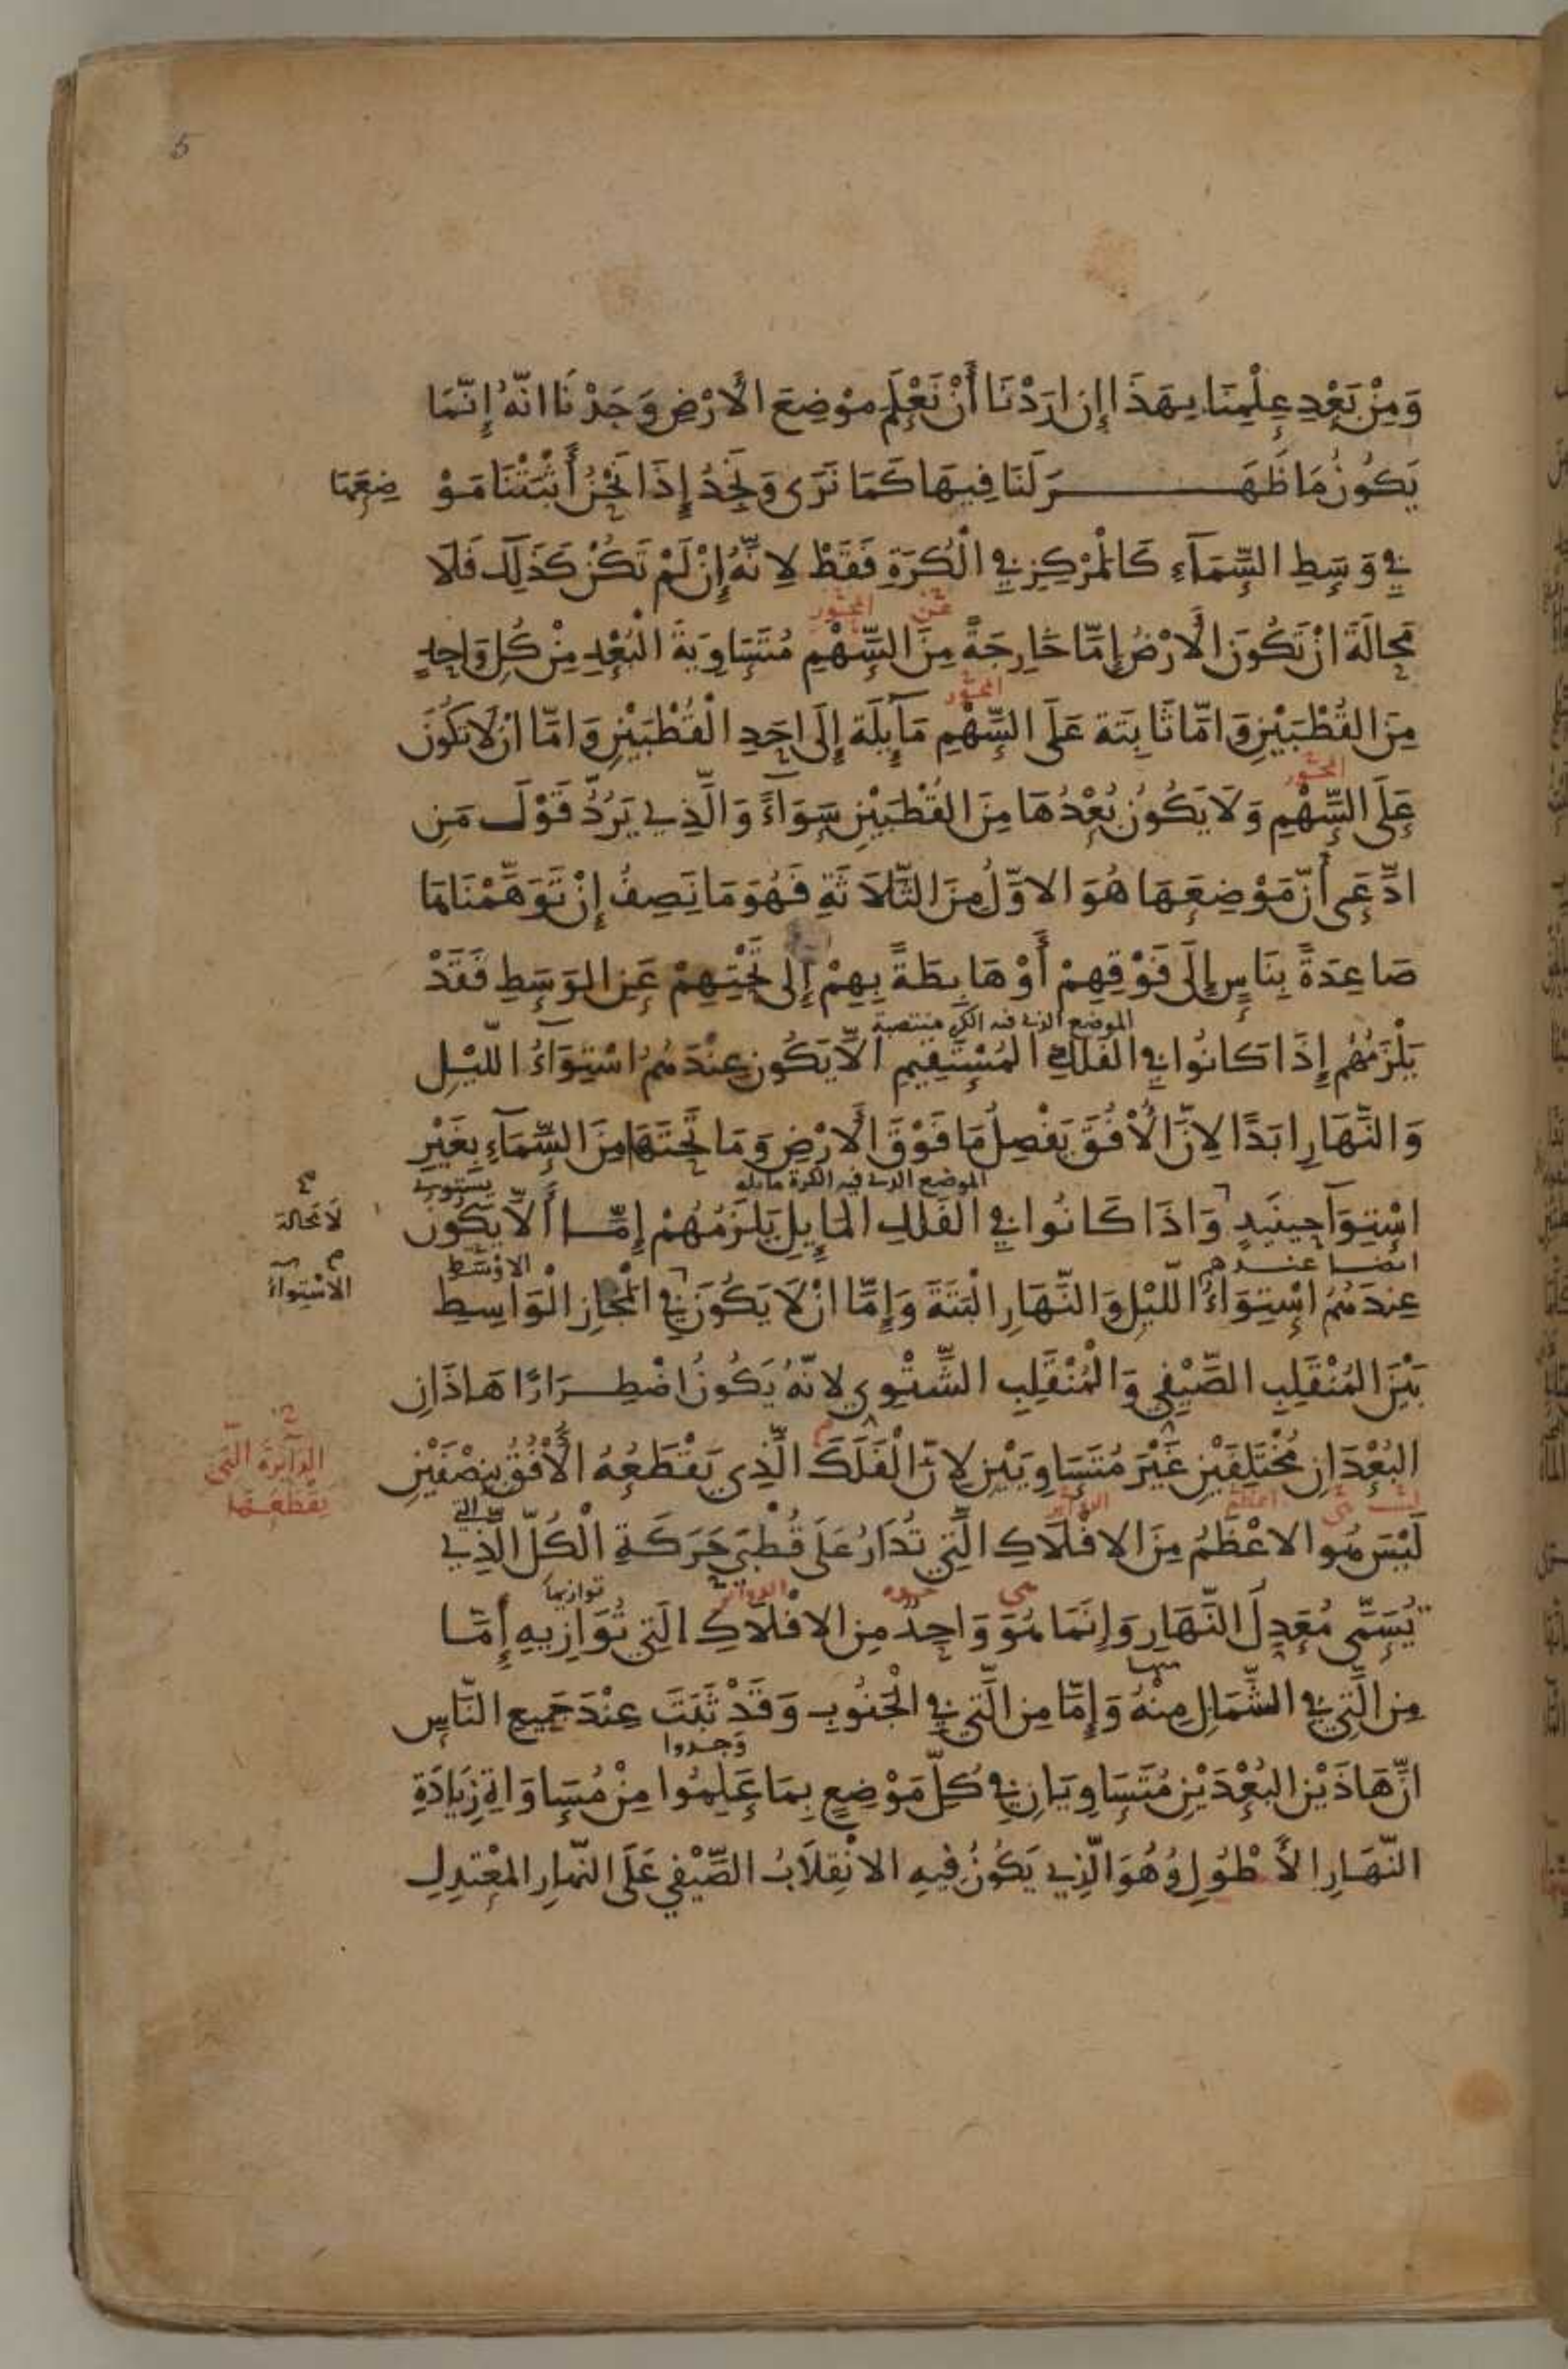 5
وَمِنْ بَعْدِ عِلْمِنَا بِهَذَا إِنْ ارَدْنَا أَنْ نَعْلَمَ مَوْضِعَ الْأَرْضِ وَجَدْنَا انّهُ إِنَّمَا
يَكُونُ مَا ظَهَرَ لَنَا فِيهَا كَمَا نَرَى وَنَجِدُ إِذَا نَحْنُ أَثْبَتْنَا مَوْضِعَهَا
فِي وَسَطِ السَّمَآءِ كَالْمَرْكِزِ فِي الْكُرَةِ فَقَطْ لِانَّهُ إِنْ لَمْ تَكُنْ كَذَلِكَ فَلَا
عن المحور
مَحَالَةَ انْ تَكُونَ الْأَرْضُ إِمَّا خَارِجَةً مِنَ السَّهْمِ مُتَسَاوِيَةَ الْبُعْدِ مِنْ كُلِّ وَاحِدٍ
المحور
مِنَ القُطْبَيْنِ وَامَّا ثَابِتَة عَلَى السَّهْمِ مَآيِلَة إِلَى احَدِ الْقُطْبَيْنِ وَامَّا انْ لَا تَكُونَ
المحور
عَلَى السَّهْمِ وَلَا يَكُونُ بُعْدُهَا مِنَ القُطْبَيْنِ سَوَآءً وَالَّذِي يَرُدُّ قَوْلَ مَنِ
ادَّعَى أَنّ مَوْضِعَهَا هُوَ الاوَّلُ مِنَ الثَّلَاثَةِ فَهُوَ مَا نَصِفُ إِنْ تَوَهَّمْنَاهَا
صَاعِدَةً بِنَاسٍ إِلَى فَوْقِهِمْ أَوْ هَابِطَةً بِهِمْ إِلى تَحْتِهِمْ عَنِ الوَسَطِ فَقَدْ
الموضع الذي فيه الكرة منتصبة
يَلْزَمُهُم إِذَا كَانُوا فِي الفَلَكِ المُسْتَقِيمِ الَّا يَكُون عِنْدَهُمُ اسْتِوَآءُ اللّيْلِ
وَالنَّهَارِ ابَدًا لِانَّ الْأُفُقَ يَفْصِلُ مَا فَوْقَ الْأَرْضِ وَمَا تَحْتَهَا مِنَ السَّمَآءِ بِغَيْرِ
الموضع الذي فيه الكرة مايله
اسْتِوَآ حِينَيِدٍ وَاذَا كَانُوا فِي الفَلَكِ المَايِلِ يَلْزَمُهُمْ إِمَّا أَلَّا يَكُون
لَا مَحَالة
ايضا عندهم الاوْسَط
عِندَهُمُ إِسْتِوَآءُ اللّيْلِ وَالنَّهَارِ الْبَتَةَ وَإِمَّا انْ لَا يَكُونَ فِي الْمَجَازِ الْوَاسِطِ
الاسْتِوآءُ
بَيْنَ المُنْقَلِبِ الصَّيْفِي وَالْمُنْقَلِبِ الشَّتْوِي لِانّهُ يَكُونُ اضْطِرَارًا هَاذَانِ
البُعْدَانِ مُخْتَلِفَيْنِ غَيْرَ مُتَسَاوِيَيْنِ لِانَّ الْفَلَكَ الَّذِي يَقْطَعُهُ الْأُفُقُ بِنِصْفَيْنِ
الدآئرة التي
يقطعها
ليست هي اعظم الدوآئر التي
لَيْسَ هُو الاعْظَمُ مِنَ الافْلَاكِ الَّتِي تُدَارُ عَلَى قُطْبَي حَرَكَةِ الْكُلّ الَّذِي
هي الدوآئر توازيها
يُسَمَّى مُعَدِلَ النَّهَارِ وَإِنَمَا هُوَ وَاحِدٌ مِن الافْلَاكِ الَتِي تُوَازِيهِ إِمَّا
مِن الَّتِي فِي الشَّمَالِ مِنْهُ وَإِمَّا مِن الَّتِي فِي الْجَنُوبِ وَقَدْ ثَبَتَ عِنْدَ جَمِيعِ النَّاسِ
وَجدوا
انَّ هَاذَيْنِ البُعْدَيْنِ مُتَسَاوِيَانِ فِي كُلِّ مَوْضِعٍ بِمَا عَلِمُوا مِنْ مُسَاوَاةِ زِيَادَةِ
النّهَارِ الأَطْوَلِ وَهُوَ الَّذِي يَكُونُ فِيهِ الانْقِلَابُ الصَّيْفِي عَلَى النّهارِ المعْتَدِلِ